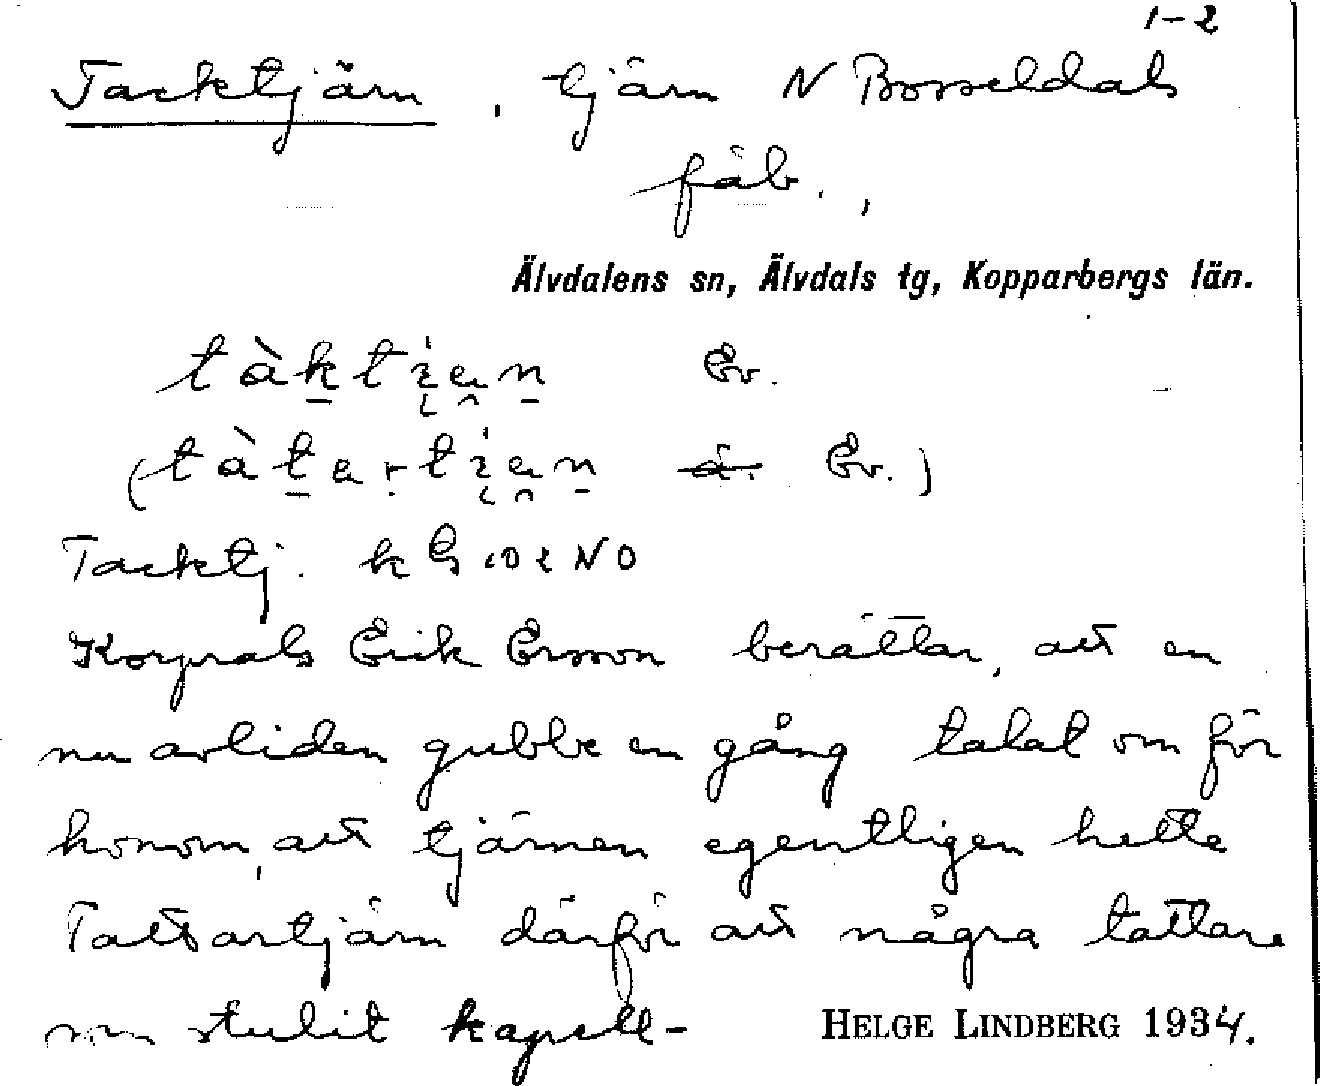 1-2
Tacktjärn, tjärn N Bosseldals
fäb.,
Älvdalens sn, Älvdals tg, Kopparbergs län.
Ev.
( Ev.)
Tacktj. k G 102 NO
Korprals Erik Ersson berättar, att en
nu avliden gubbe en gång talat om för
honom, att tjärnen egentligen hette
Tattartjärn därför att några tattare
som stulit kapell-
HELGE LINDBERG 1934.